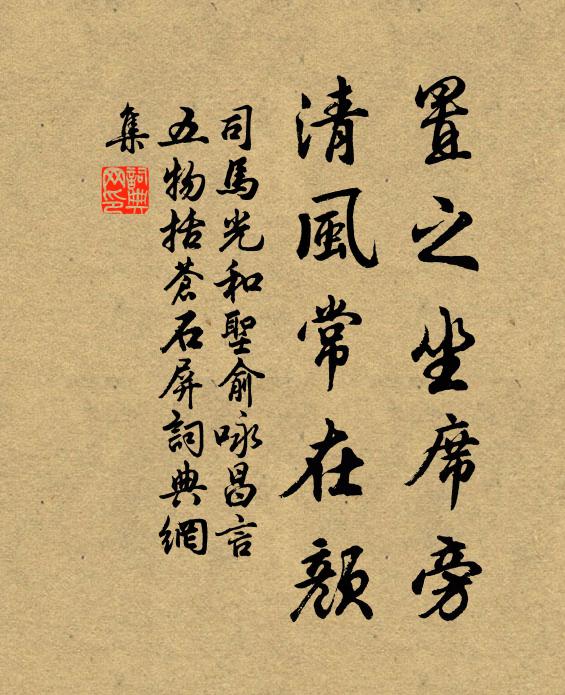 置之坐席旁
清風常在顏
司馬光和聖俞咏昌言
五物括蒼石屏詞典網
集
詞典
网印